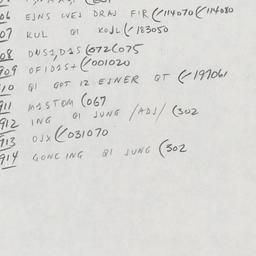 06 EJNS WES DRAJ FIR (✓114070 (✓114080
07 KUL QI KOJL (✓183050
08 DNSI,DIS (072 (075
909 OFIDIS+ (✓001020
10 QI GOT 12 EJNER QT (✓197061
911 MISTOM (067
912 ING QI JUNG /ADJ/ (302
913 OJX (✓031070
914 GONC ING QI JUNG (302